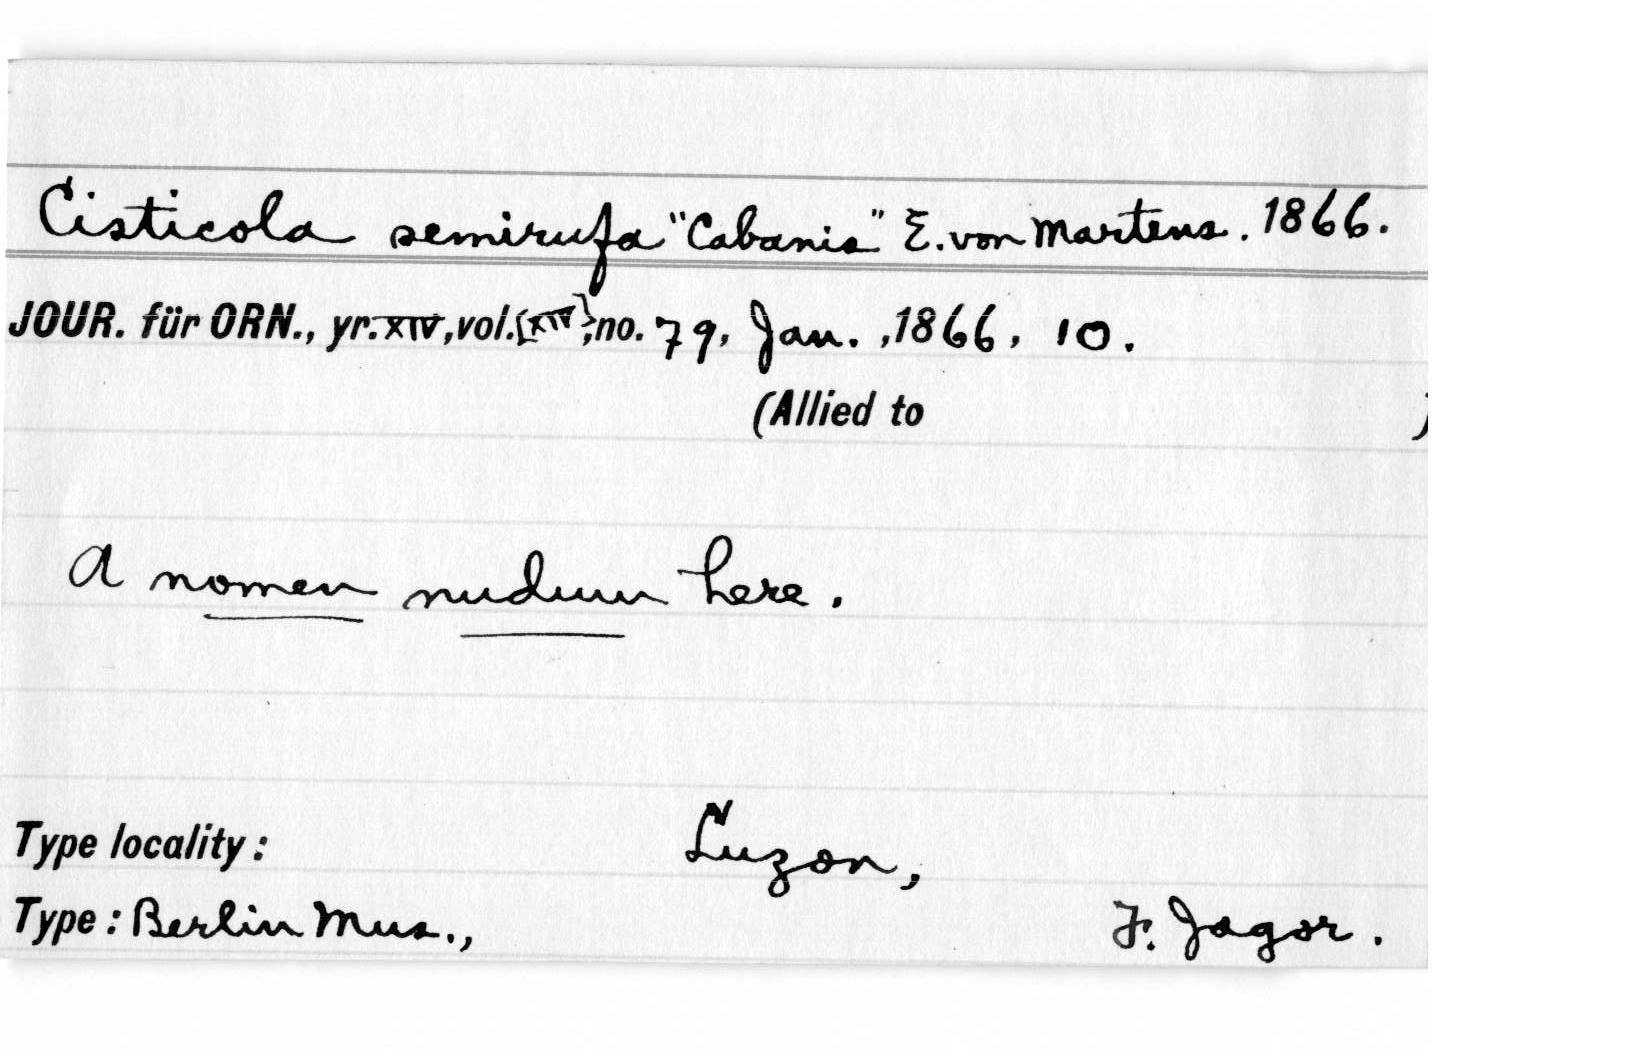 Cisticola semirufa "Cabanis" E. von Martens. 1866.
JOUR. für ORN., yr. XIV, vol. [XIV], no. 79, Jan. , 1866, 10.
(Allied to )
A nomen nudum here.
Type locality: Luzon,
Type: Berlin Mus., F. Jagor.